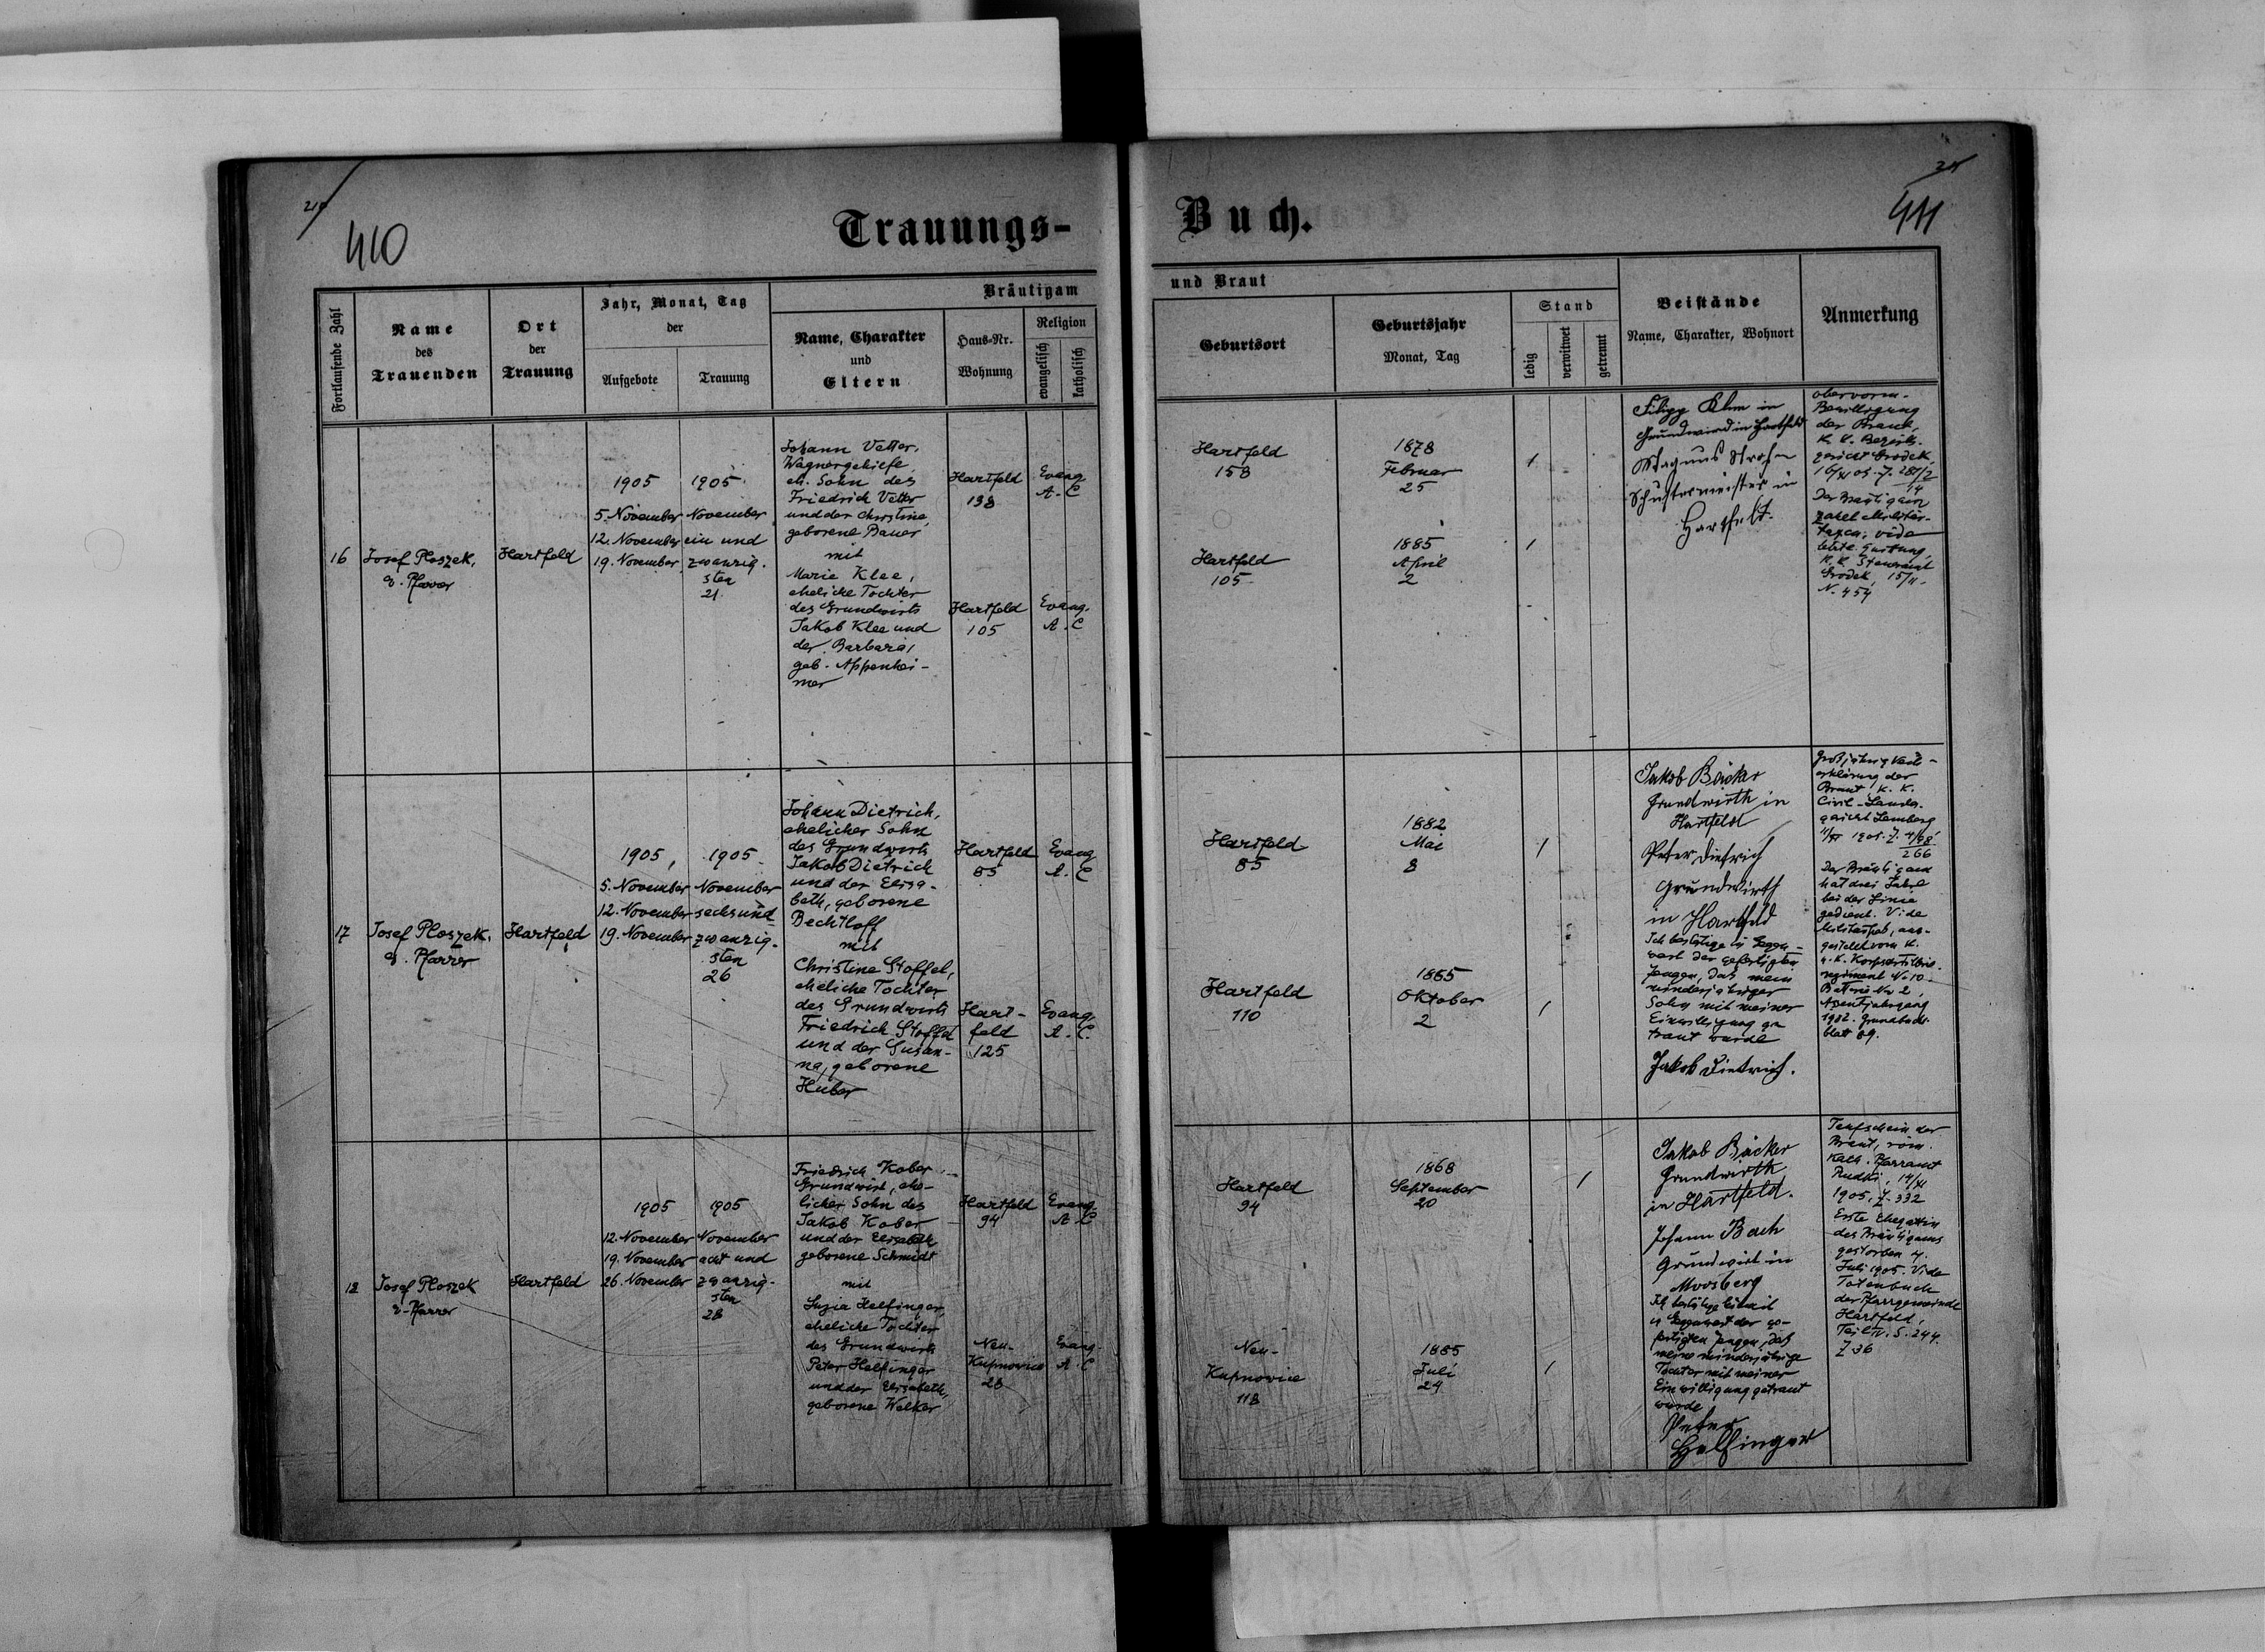 410
Trauungs-
Buch.
411
Fortlaufende Zahl
Name
des
Trauenden
Ort
der
Trauung
Jahr, Monat, Tag
der
Aufgebote
Trauung
Bräutigam
Name, Charakter
und
Eltern
Haus-Nr.
Wohnung
Religion
evangelisch
katholisch
und Braut
Geburtsort
Geburtsjahr
Monat, Tag
Stand
ledig
verwitwet
getrennt
Beistände
Name, Charakter, Wohnort
Anmerkung
16
Josef Ploszek,
e. Pfarrer
Hartfeld
1905
5. November
12. November
19. November
1905
November
ein und
zwanzig-
sten
21.
Johann Vetter,
Wagnergehilfe,
eh. Sohn des
Friedrich Vetter
und der Christine,
geborene Bauer
mit
Marie Klee,
eheliche Tochter
des Grundwirts
Jakob Klee und
der Barbara,
geb. Appenhei-
mer
Hartfeld
138
Evang
A. C
Hartfeld
105
Evang.
A. C
Hartfeld
158
1878
Februar
25
/
Hartfeld
105
1885
April
2
/
in
Grundwird in Hartfeld
Magnus Strohm
Schustermeister in
Hartfeld.
Bewilligung
der Braut,
K. K. Bezirks-
gericht Grodek
Der Bräutigam
zahlt Militär-
taxen, vide
K. K. Steueramt
Grodek, 15/11.
N. 454
17
Josef Ploszek.
e. Pfarrer
Hartfeld
1905,
5. November
12. November
19. November
1905
November
sechsund
zwanzig-
sten
26
Johann Dietrich,
ehelicher Sohn
des Grundwirts
Jakob Dietrich
und der Elisa-
beth, geborene
Bechtloff
mit
Christine Stoffel,
eheliche Tochter
des Grundwirts
Friedrich Stoffel
und der Susan-
na, geborene
Huber
Hartfeld
85
Evang
A. C
Hart-
feld
125
Evang.
A. C.
Hartfeld
85
1882
Mai
8
/
Hartfeld
110
1885
Oktober
2
/
Jakob Bäcker
Grundwirth in
Hartfeld
Peter Dietrich
Grundwirth
in Hartfeld
Ich bestätige in Gegen-
wart der gefertigten
Zeugen, daß mein
minderjähriger
Sohn mit meiner
Einwilligung ge
traut wurde
Jakob Dietrich.
erklärung der
Braut, K. K.
Civil-Landes-
gericht Lemberg
266
Der Bräutigam
hat drei Jahre
bei der Linie
gedient. Vide
Militärpaß, aus-
gestellt vom K.
u. K. Korpsartillerie-
regiment No 10.
Batterie No 2,
Assentjahrgang
1902. Grundbuchs-
blatt 89.
18
Josef Ploszek
e. Pfarrer
Hartfeld
1905
12. November
19. November
26. November
1905
November
acht und
zwanzig-
sten
28
Friedrich Kober,
Grundwirt, ehe-
licher Sohn des
Jakob Kober
und der Elisabeth
geborene Schmidt
mit
Luzia Helfinger,
eheliche Tochter
des Grundwirts
Peter Helfinger
und der Elisabeth,
geborene Welker
Hartfeld
94
Evang.
A. C
Neu-
Kupnovice
28
Evang.
A. C
Hartfeld
94
1868
September
20
/
Neu-
Kupnovice
118
1885
Juli
24
/
Jakob Bäcker
Grundwirth
in Hartfeld.
Johann Bach
Grundwirt in
Moosberg
Ich bestätige hiemit
in Gegenwart der ge-
fertigten Zeugen, daß
meine minderjährige
Tochter mit meiner
Einwilligung getraut
wurde
Peter
Helfinger
Taufschein der
Braut, röm.
Kath. Pfarramt
Rudki, 14/XI
1905, Z. 332
Erste Ehegattin
des Bräutigams
gestorben 4.
Juli 1905. Vide
Totenbuch
der Pfarrgemeinde
Hartfeld,
Teil IV. S. 244.
Z 36